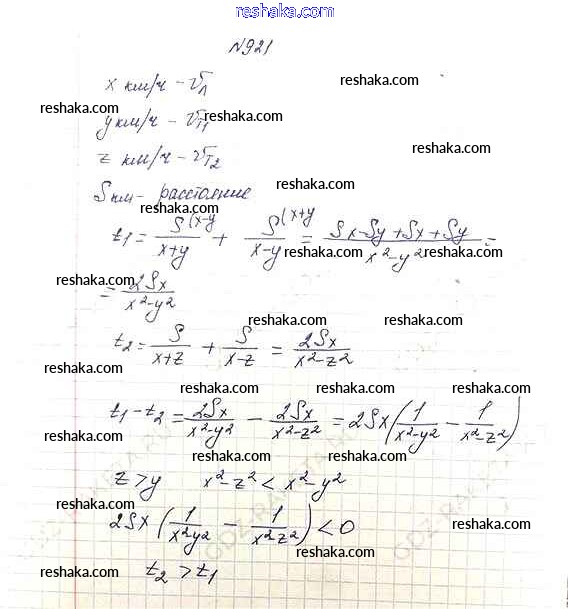 reshaka.com
N921
x км/ч - Vл
reshaka.com
reshaka.com
y км/ч - Vт1
reshaka.com
reshaka.com
z км/ч - Vт2
reshaka.com
S км - расстояние
reshaka.com
t1 = S(x-y / x+y + S(x+y / x-y = Sx-Sy+Sx+Sy / x²-y² =
reshaka.com reshaka.com
reshaka.com
= 2Sx / x²-y²
reshaka.com reshaka.com
t2 = S / x+z + S / x-z = 2Sx / x²-z²
reshaka.com
reshaka.com reshaka.com reshaka.com
t1-t2 = 2Sx / x²-y² - 2Sx / x²-z² = 2Sx(1 / x²-y² - 1 / x²-z²)
reshaka.com reshaka.com
reshaka.com reshaka.com
z>y x²-z² < x²-y²
reshaka.com reshaka.com
2Sx(1 / x²y² - 1 / x²z²) < 0
reshaka.com
reshaka.com
t2 > t1
reshaka.com reshaka.com
reshaka.com